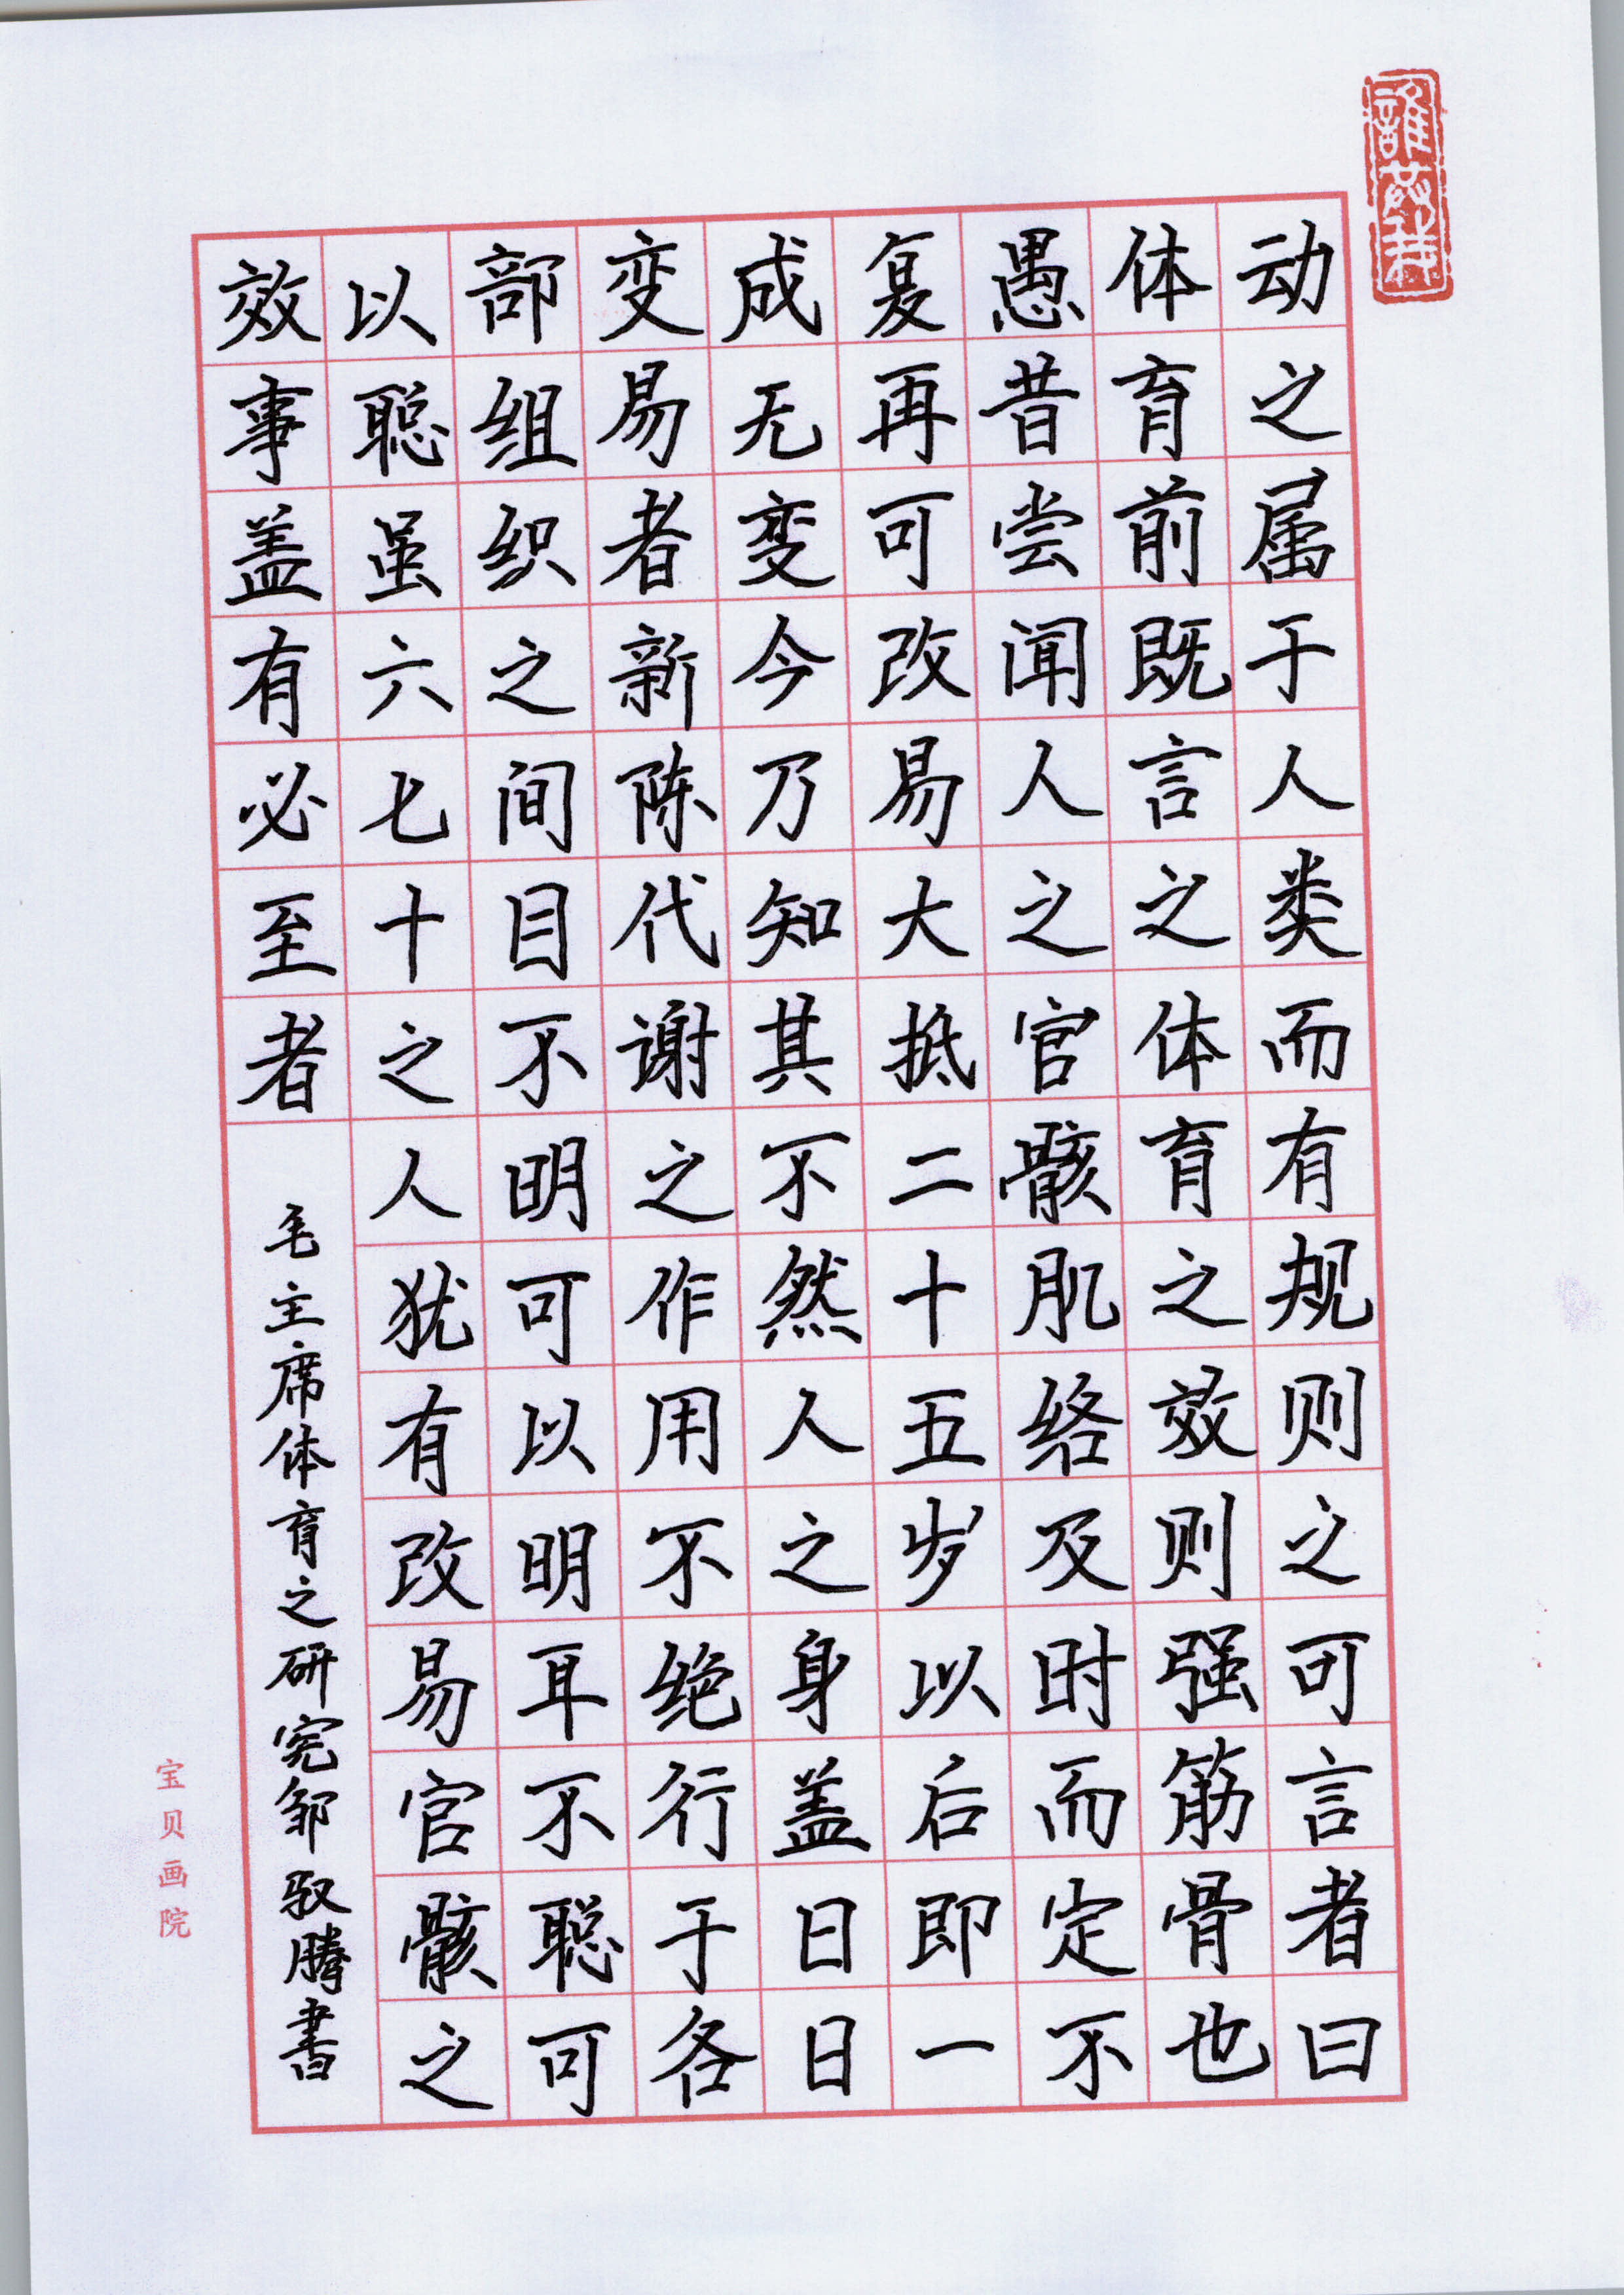 动之属于人类而有规则之可言者曰
体育前既言之体育之效则强筋骨也
愚昔尝闻人之官骸肌络及时而定不
复再可改易大抵二十五岁以后即一
成无变今乃知其不然人之身盖日日
变易者新陈代谢之作用不绝行于各
部组织之间目不明可以明耳不聪可
以聪虽六七十之人犹有改易官骸之
效事盖有必至者
毛主席体育之研究邹驭腾書
宝贝画院